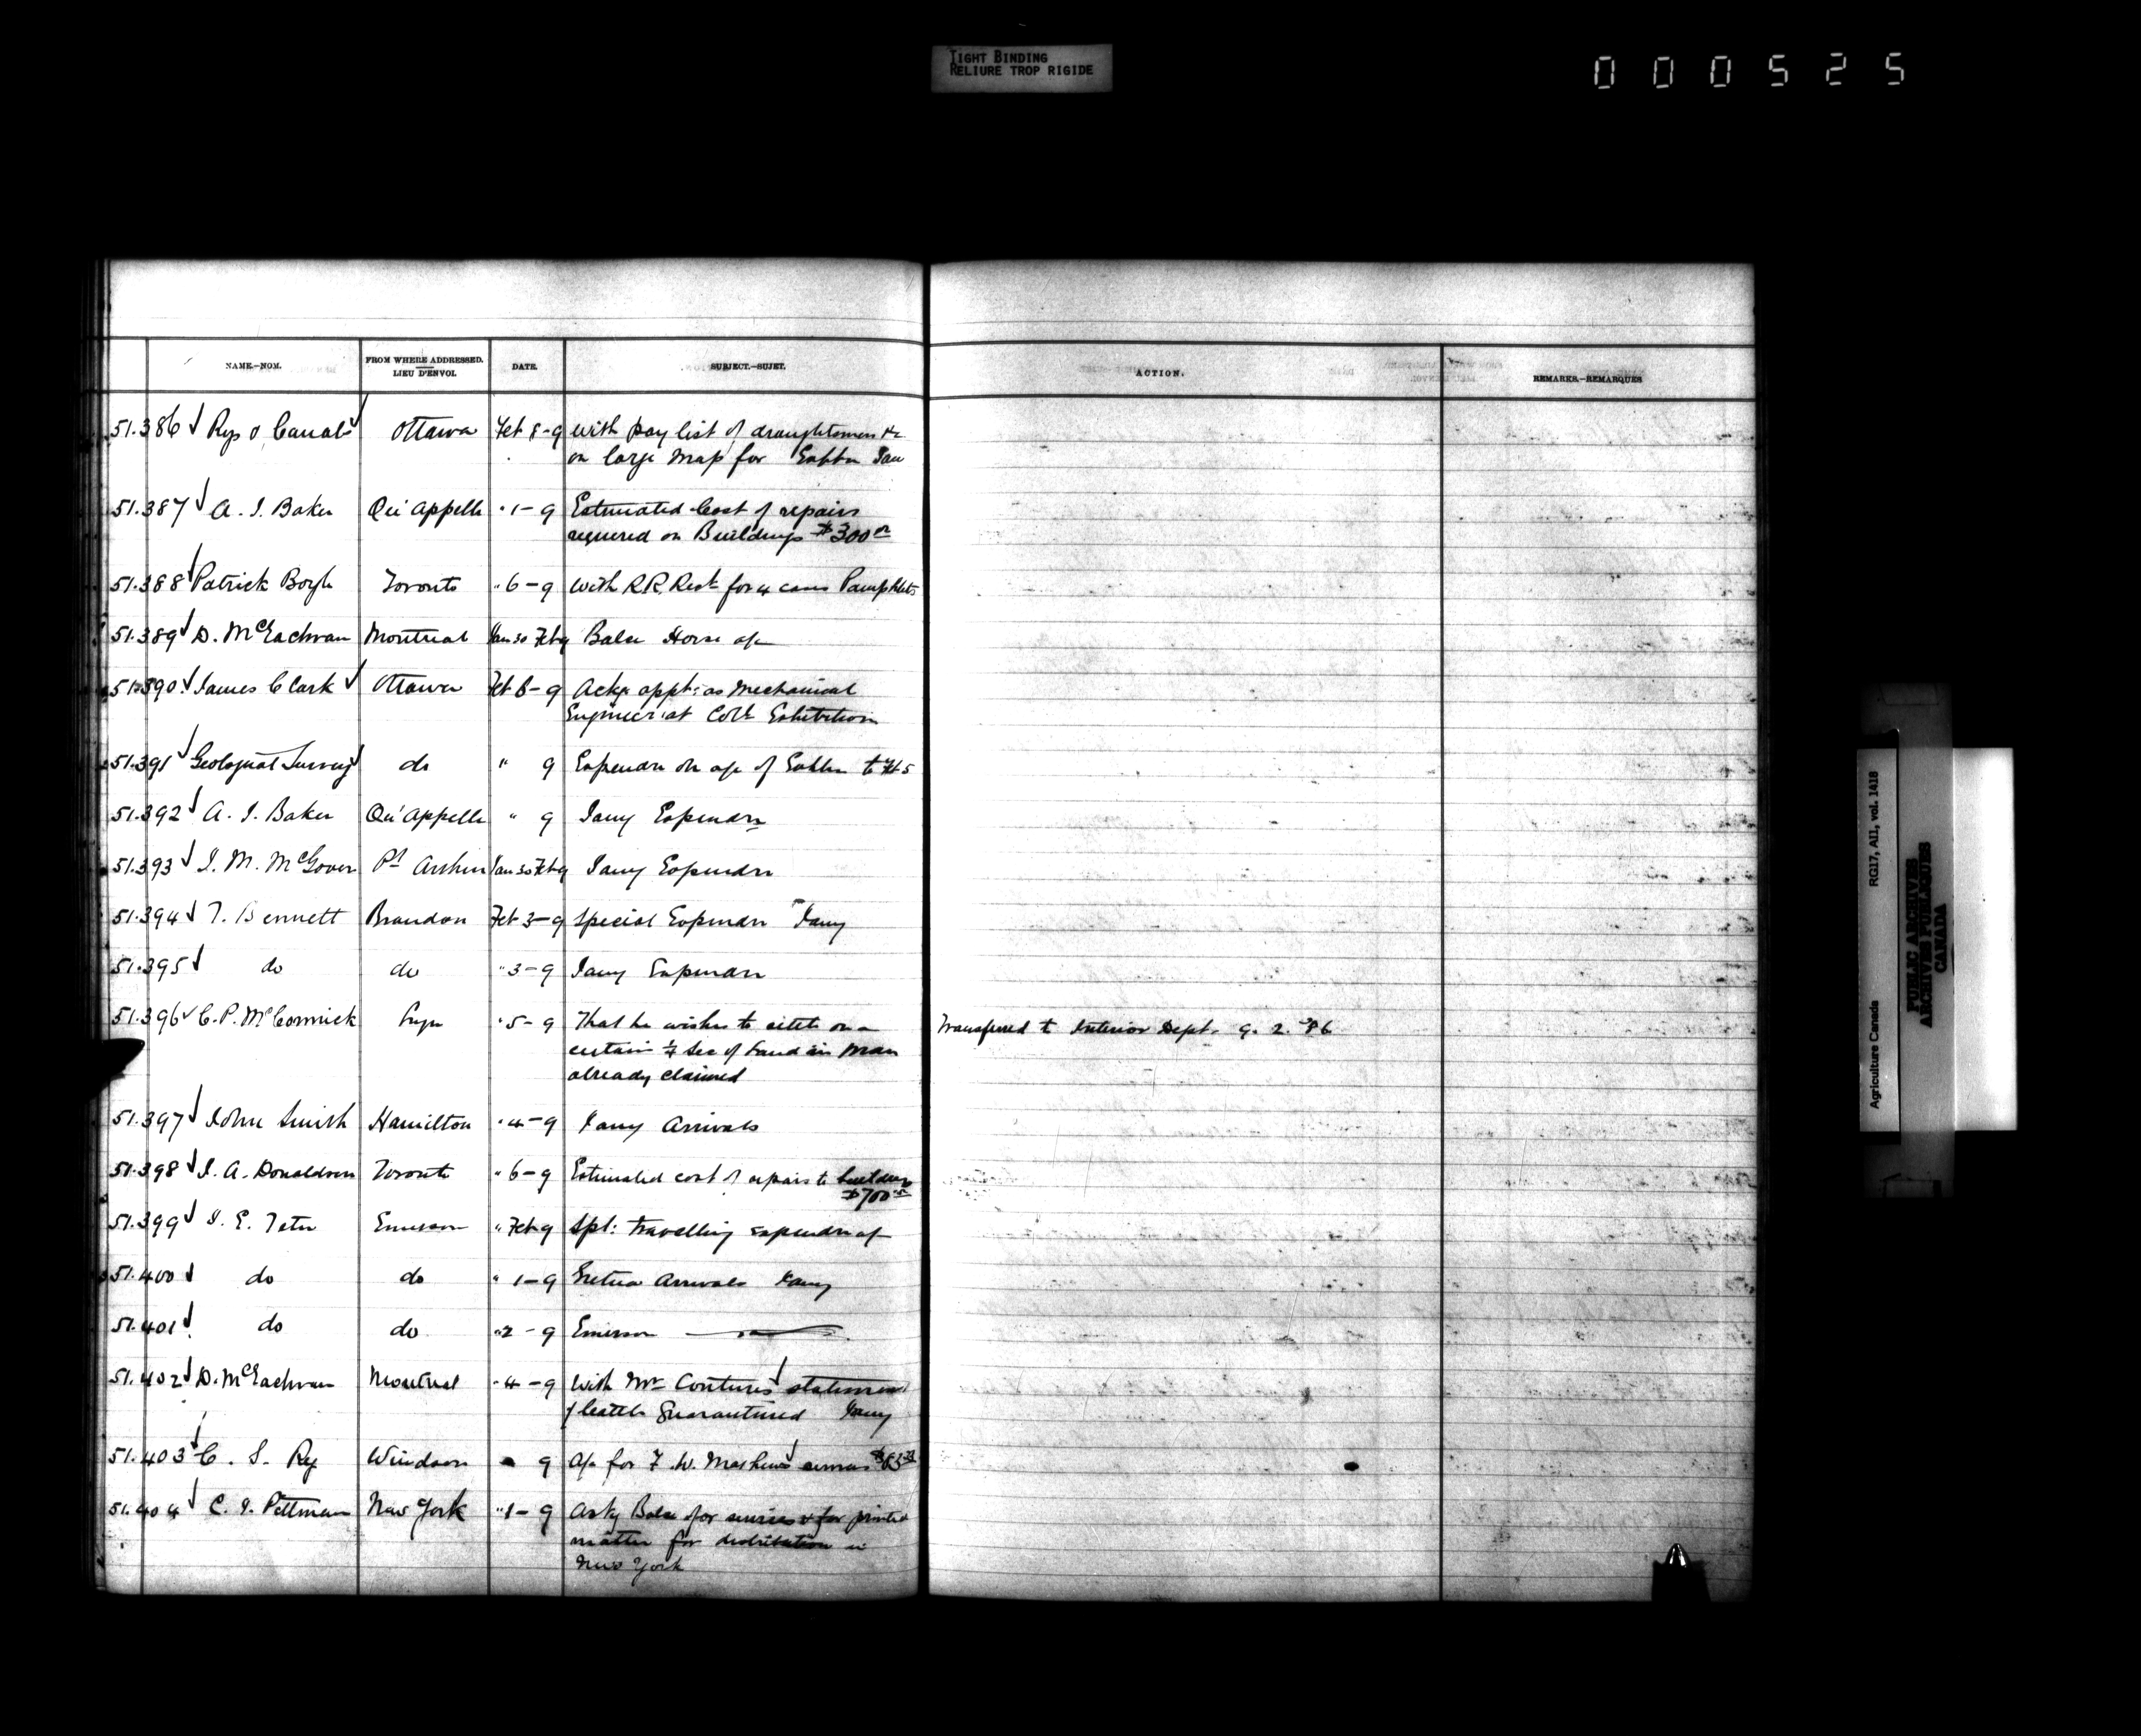 TIGHT BINDING
RELIURE TROP RIGIDE
000525
NAME.—NOM. FROM WHERE ADDRESSED. LIEU D'ENVOI. DATE. SUBJECT.—SUJET. ACTION. REMARKS.—REMARQUES
51.386 Rys & Canals Ottawa Feb 8-9 With pay list of draughtsmen &c
on large Map for Exhbn Jan
51.387 A. J. Baker Qu'Appelle " 1-9 Estimated Cost of repairs
required on Buildings $300 00
51.388 Patrick Boyle Toronto " 6-9 With R.R. Rect for 4 cases Pamphlets
51.389 D. McEachran Montreal Jan 30 Feb 9 Balce Horse a/c
51.390 James Clark Ottawa Feb 8-9 Ackg appt: as Mechanical
Engineer at Coll Exhibition
51.391 Geological Survey do " 9 Expendre on a/c of Exhbn to Feb 5
51.392 A. J. Baker Qu'Appelle " 9 Jany Expendre
51.393 J. M. McGovern Pt Arthur Jan 30 Feb 9 Jany Expendre
51.394 T. Bennett Brandon Feb 3-9 Special Expendre Jany
51.395 do do " 3-9 Jany Expendre
51.396 C. P. McCormick " 5-9 That he wishes to settle on a
certain ¼ Sec of Land in Man
already claimed
Transferred to Interior Dept. 9. 2. '86
51.397 John Smith Hamilton " 4-9 Jany Arrivals
51.398 J. A. Donaldson Toronto " 6-9 Estimated cost of repairs to buildings
$700 00
51.399 J. E. Tetu Emerson " Feb 9 Spl: travelling expendre a/c
51.400 do do " 1-9 Gretna Arrivals Jany
51.401 do do " 2-9 Emerson
51.402 D. McEachran Montreal " 4-9 With Mr Coutures statement
of Cattle Quarantined Jany
51.403 C. S. Ry Windsor " 9 A/c for F. W. Mathews
51.404 C. J. Pettman New York " 1-9 Askg Balce for services & for printed
matter for distribution in
New York
RG17, AII, vol. 1418
Agriculture Canada
PUBLIC ARCHIVES
ARCHIVES PUBLIQUES
CANADA